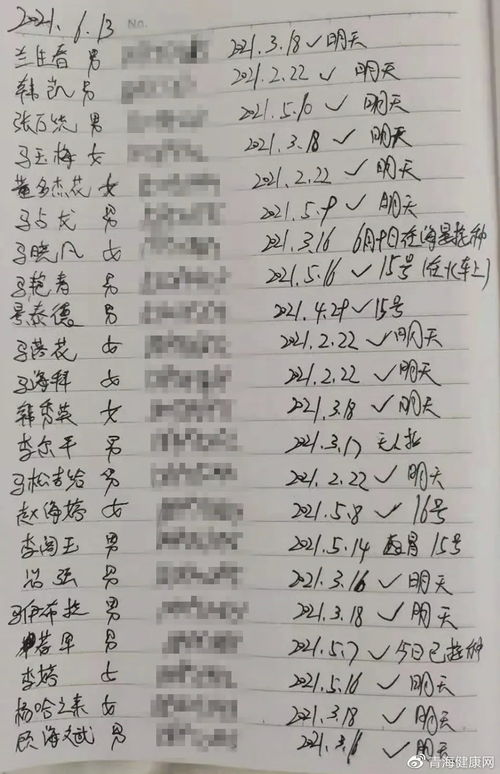 2021.6.13 No.
兰生春 男 2021.3.18 ✓ 明天
韩凯 男 2021.2.22 ✓ 明天
张百统 男 2021.5.10 ✓ 明天
马玉梅 女 2021.3.18 ✓ 明天
黄多杰花 女 2021.2.22 ✓ 明天
马占龙 男 2021.5.9 ✓ 明天
马晓凡 女 2021.3.16 6月9日在海星接种
马艳青 男 2021.5.16 ✓ 15号(在火车上)
景泰德 男 2021.4.29 ✓ 15号
马花 女 2021.2.22 ✓ 明天
马海 女 2021.2.22 ✓ 明天
韩秀英 女 2021.3.18 ✓ 明天
李尔平 男 2021.3.17 无人接
马松吉给 男 2021.2.22 ✓ 明天
赵海婷 女 2021.5.8 ✓ 16号
李阁玉 男 2021.5.14 15号
强 男 2021.3.16 ✓ 明天
马伊布拉 男 2021.3.18 ✓ 明天
男 2021.5.7 ✓ 今日已接种
李 女 2021.5.16 ✓ 明天
杨哈之来 女 2021.3.18 ✓ 明天
顾海斌 男 2021.3.16 ✓ 明天
@青海健康网